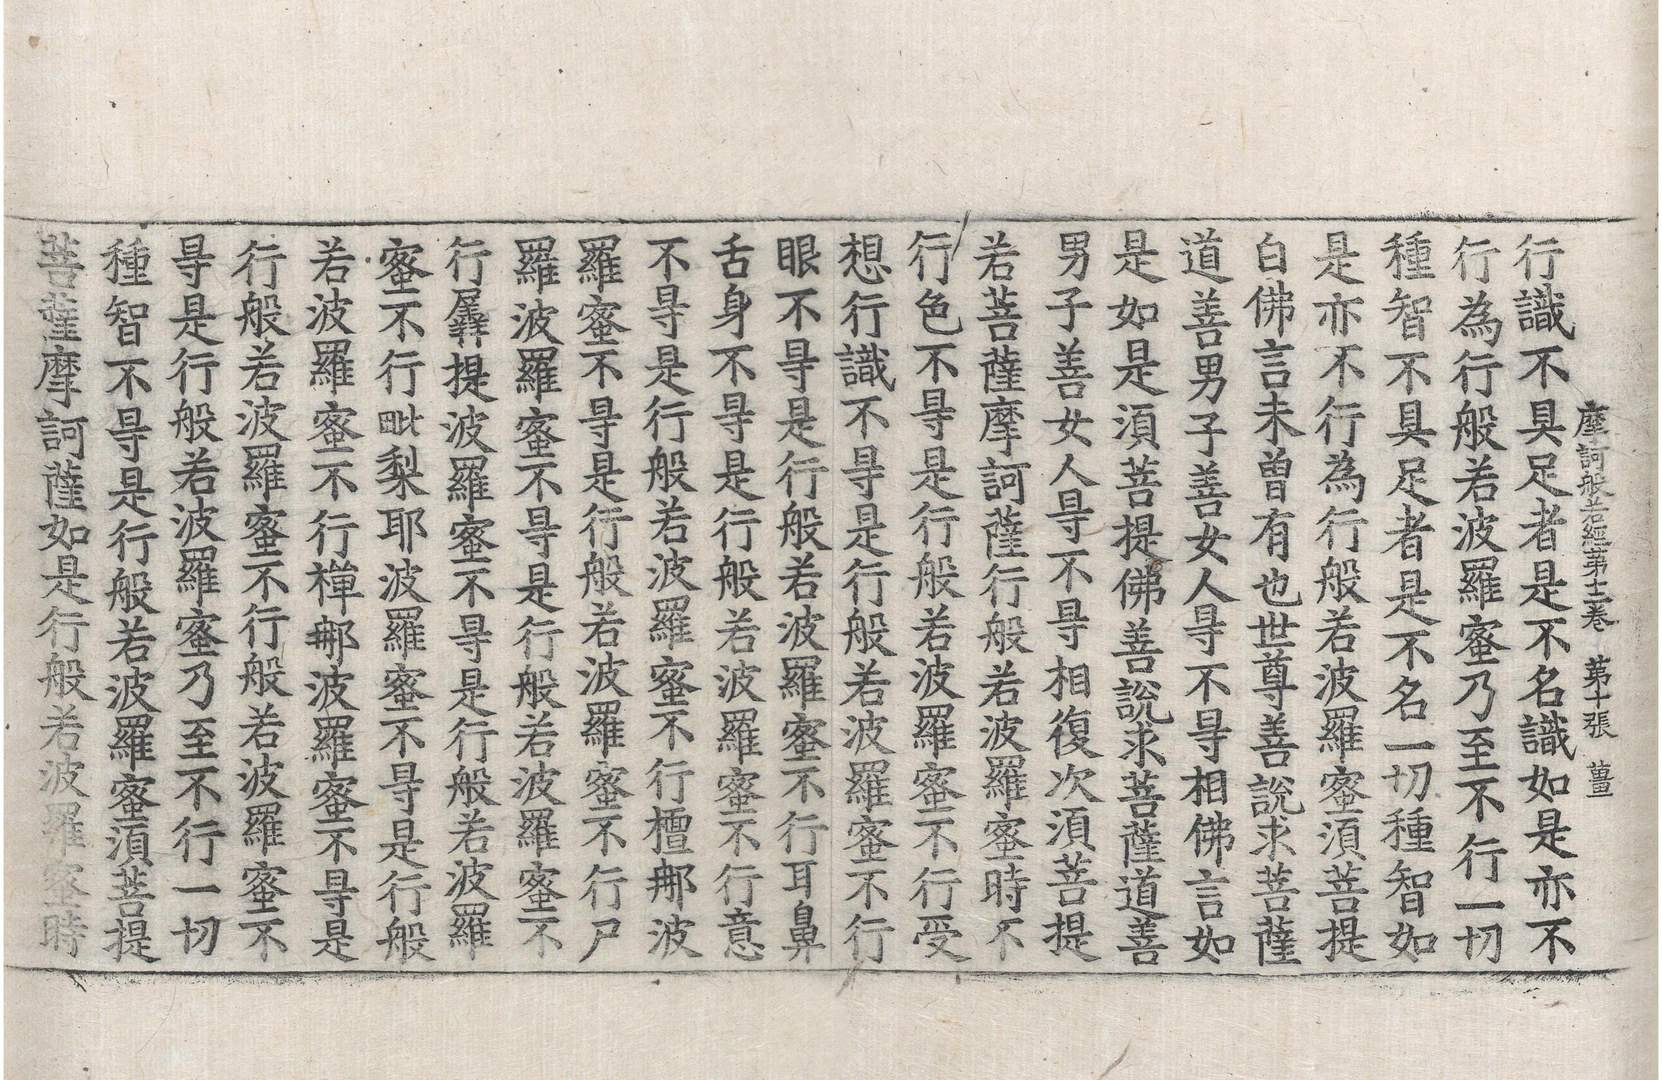 摩訶般若經第十二卷　第十張　薑
行識不具足者是不名識如是亦不
行為行般若波羅蜜乃至不行一切
種智不具足者是不名一切種智如
是亦不行為行般若波羅蜜湏菩提
白佛言未曾有也世尊善說求菩薩
道善男子善女人㝵不㝵相佛言如
是如是湏菩提佛善說求菩薩道善
男子善女人㝵不㝵相復次湏菩提
若菩薩摩訶薩行般若波羅蜜時不
行色不㝵是行般若波羅蜜不行受
想行識不㝵是行般若波羅蜜不行
眼不㝵是行般若波羅蜜不行耳鼻
舌身不㝵是行般若波羅蜜不行意
不㝵是行般若波羅蜜不行檀那波
羅蜜不㝵是行般若波羅蜜不行尸
羅波羅蜜不㝵是行般若波羅蜜不
行羼提波羅蜜不㝵是行般若波羅
蜜不行毗梨耶波羅蜜不㝵是行般
若波羅蜜不行禪那波羅蜜不㝵是
行般若波羅蜜不行般若波羅蜜不
㝵是行般若波羅蜜乃至不行一切
種智不㝵是行般若波羅蜜湏菩提
菩薩摩訶薩如是行般若波羅蜜時